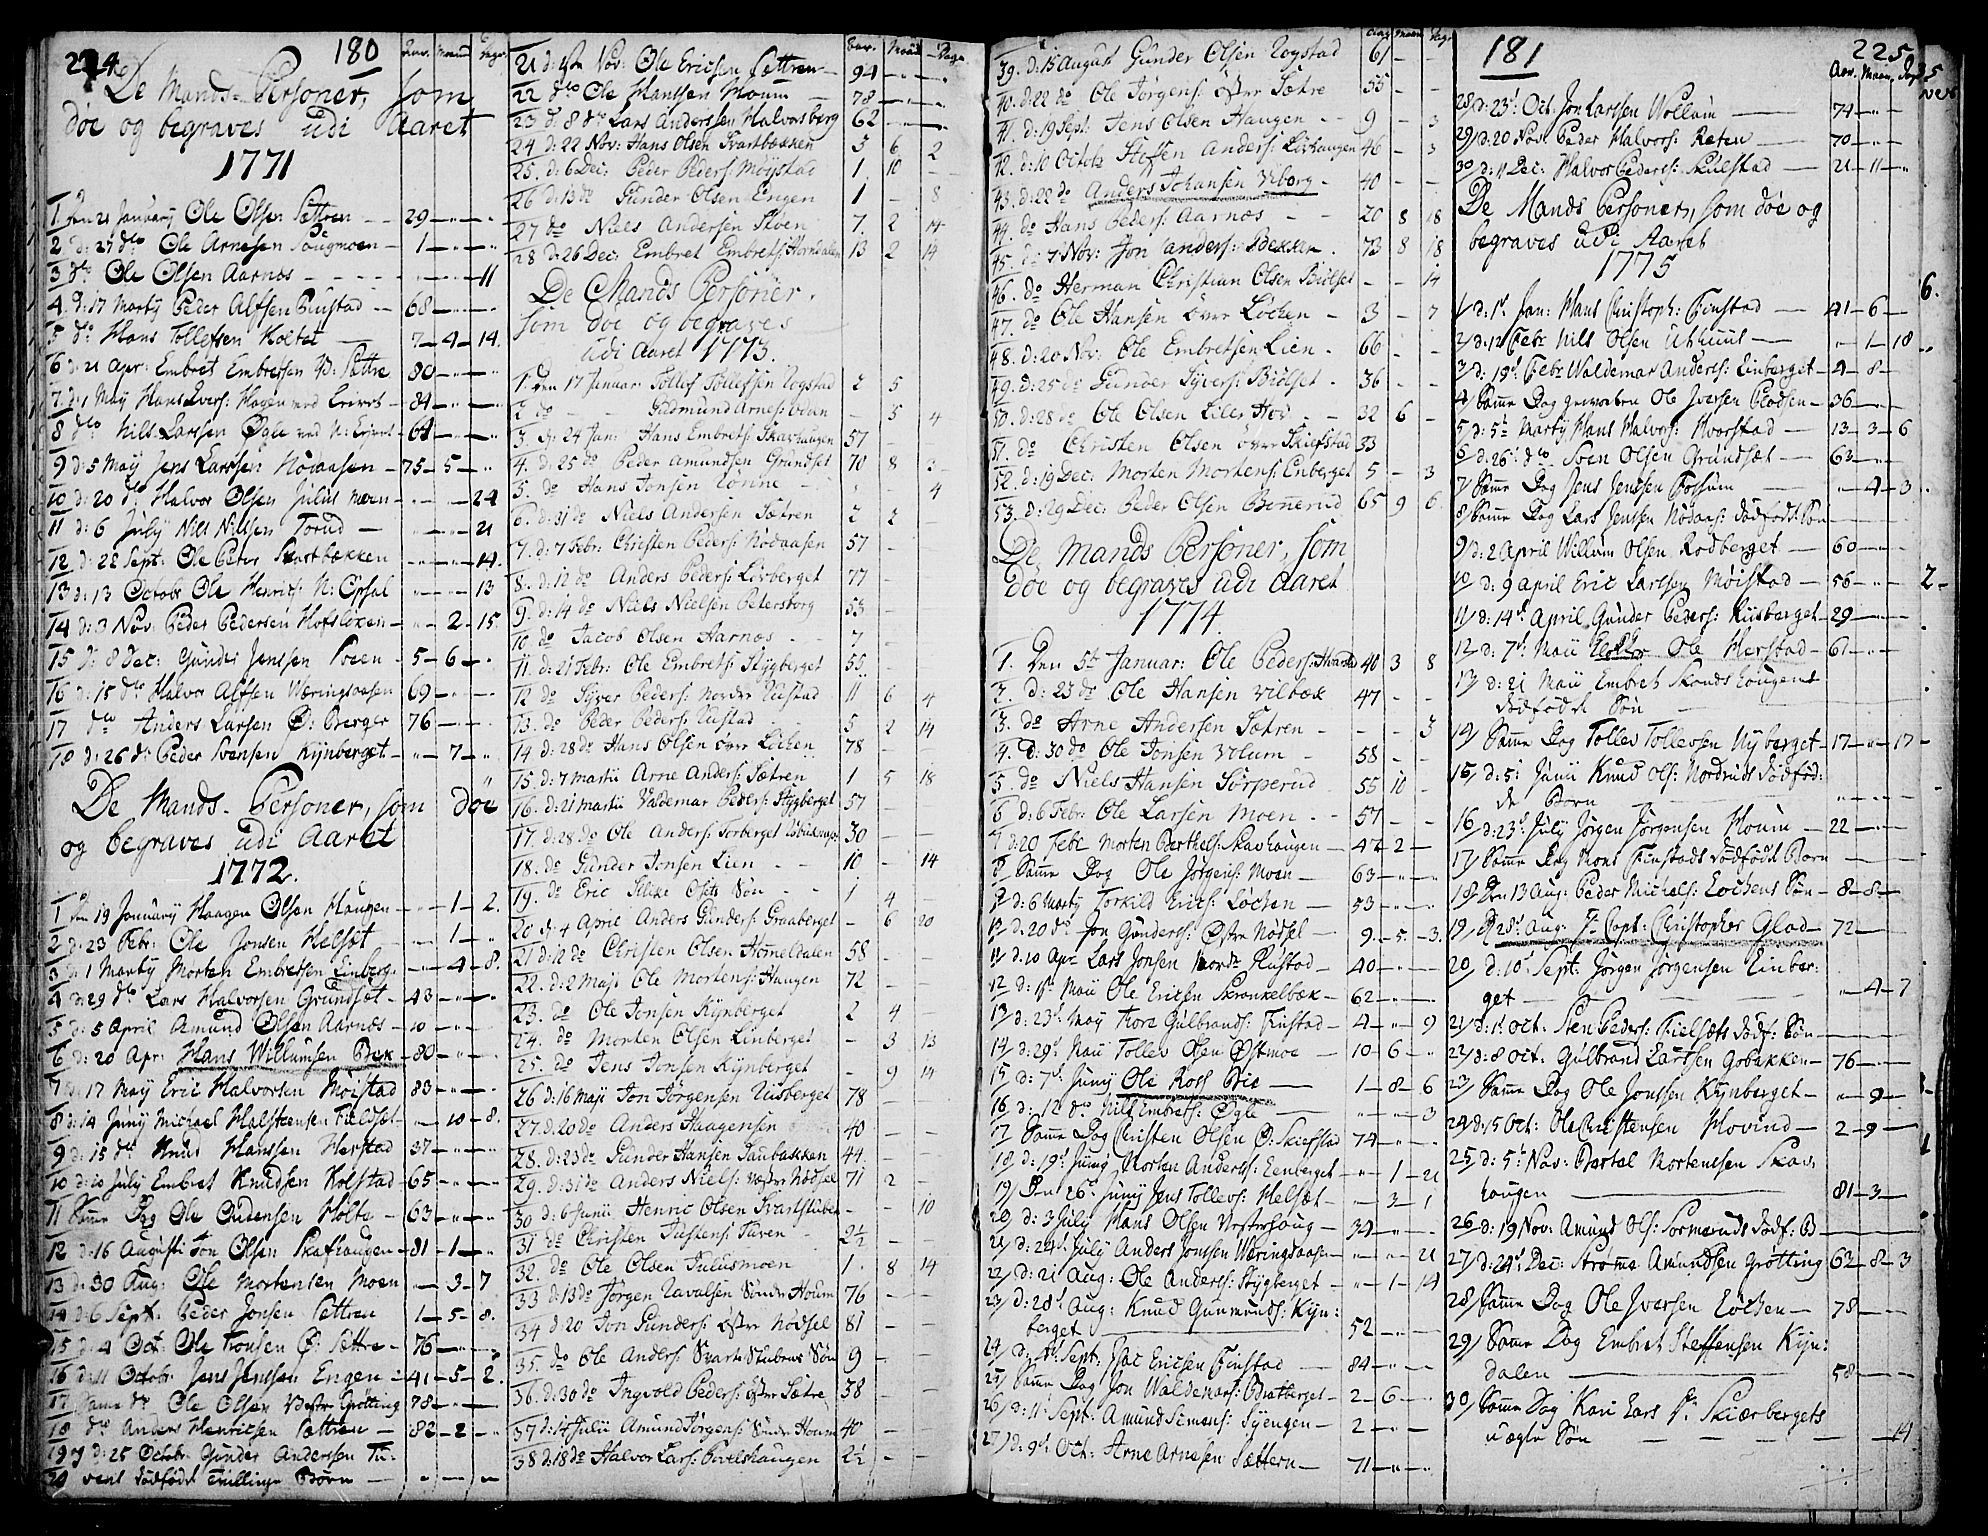 224 180
Aar. Maan. Dage
De Mands-Personer, som
döe og begraves udi Aaret
1771
1. den 21 Januarij Ole Olsen Sættren - 29 - " - "
2 d: 27 dto Ole Arnesen Sougmoen - 1 - " - "
3 dto Ole Olsen Aarnæs - " - " - 11
4. d: 17 Martij Peder Alfsen - 68 - " - "
5 do Hans Tollefsen Holtet - 7 - 4 - 14.
6 d: 21 Apr: Embret Embretsen Ø: Sættre 80 - " - "
7 d: 1 Maij Hans Ivers: Hagen ved Elvret - 84 - " - "
8 dto Nils Larssen Øgle ved N: Elvret - 64 - " - "
9 d: 5 Maij Jens Larssen Nödaasen - 75 - 5 - "
10 d: 20 do Halvor Olsen Julus moen - " - " - 24
11 d: 6 Julij Nils Nilssen Torud - " - " - 21
12 d: 22 Sept: Ole Peter Svartbækken - " - " - 14.
13 d: 13 Octobr Ole Henrics: N: Opsal " - " - 13
14 d: 3 Nov: Peder Pedersen Hofslöken - " - 2 - 15
15 d: 8 Dec: Gunder Jenssen Loen - 5 - 6 - "
16 d: 15 dto Halvor Alfsen Wæringsaasen 69 - " - "
17 dto Anders Larsen Ø: Berger 76 - " - "
18 d: 26 do Peder Svensen Kijnberget - " - 7 - "
De Mands-Personer, som döe
og begraves udi Aaret
1772.
1 den 19 Januarij Haagen Olsen Haugen - " - 1 - 2.
2 d: 23 Febr: Ole Jonsen Helsæt - " - 1 - "
3 d: 1 Martij Morten Embretsen Einberg - " - 4 - 8.
4 d: 29 dto Lars Halvorsen Grundsæt - 43 - " - "
5 d: 5 April Amund Olsen Aarnæs - 10 - " - "
6 d: 20 Apr: Hans Willumsen Bek - 80 - " - "
7 d: 17 Maij Eric Halvorsen Moistad 83 - " - "
8 d: 14 Junij Michael Halsteensen Fieldsæt - " - 10 - 8.
9 d: 15 dto Knud Hanssen Harstad 37 - " - "
10 d: 10 Julij Embret Knudsen Kolstad - 65 - " - "
11 Samme Dag Ole Oudensen Holte - 63 - " - "
12 d: 16 Augusti Jon Olsen Skafhaugen - 81 - 1 - "
13 d: 30 Aug: Ole Mortensen Moen - " - 3 - 7
14 d: 6 Sept: Peder Jonsen Sættren 1 - 5 - 8.
15 d: 4 Oct: Ole Tronsen Ø: Sættre - 76 - " - "
16 d: 11 Octobr: Jens Jenssen Engen - 41 - 5 - 2.
17 Samme do Ole Olsen Vestr Grötting 78 - " - "
18 dto Anders Henricsen Sættren - 82 - 2 - "
19 d: 25 Octobr Gunder Anderssen Tu-
20 vens dödfödde Tvillinge Börn - " - " - "
Aar. Maan. Dage
21 d: 1ste Nov: Ole Ericsen Sættren - 94 - " - "
22 dto Ole Hanssen Moum - 78 - " - "
23 d: 8 dto Lars Anderssen Halvorsberg 62 - " - "
24 d: 22 Nov: Hans Olsen Svartbækken 3 6 2
25. d: 6 Dec: Peder Peders: Möystad 1. 10 -
26 d: 13 do Gunder Olsen Engen 1 - 8
27 do Niels Andersen Skoen 7. 2 14
28 d: 26 Dec: Embret Embrets: Horndalen 13 2 14
De Mands Personer.
som döe og begraves
udi Aaret 1773.
1. Den 17 Januar: Tollof Tollefsen Rogstad 2 5
2 do - - Gudmund Arnes: Odan - 5 4
3. d: 24 Jan: Hans Embrets: Skavhaugen 57
4. d: 25 do Peder Amundsen Grundset 70 8
5. do Hans Jonsen Rönne - 4
6. d: 31 do Niels Andersen Sætren 2 2
7. d: 7 Febr: Christen Peders: Nödaasen 57 -
8. d: 12 do Anders Peders: Livberget 77 -
9. d: 14 do Niels Nielsen Petersborg 53 -
10 do Jacob Olsen Aarnæs 7 -
11. d: 21 Febr: Ole Embrets: Stygberget 55 -
12 do Syver Peders: norder Rustad 11 6 4
13. do Peder Peders: Rustad 5 2 14
14 d: 28 do Hans Olsen över Löchen 78 -
15 d: 7 Martii Arne Anders: Sætren 1 5 18
16. d: 21 Martii Valdemar Peders: Stygberget 57 -
17. d: 28 do Ole Anders: Torberget 30 - -
18. do Gunder Jonsen Lien 10 - 14
19. do Eric Ilske Osets Sön 1 4 -
20 d. 4 April Anders Gunders: Graaberget - 6 20
21 d: 12 do Christen Olsen Homeldalen 58 -
22. d: 2 Maji Ole Mortens: Haugen 72 -
23. do Ole Jonsen Kynberget 2 4
24. do Morten Olsen Einberget - 3 13
25. do Jens Jonsen Kynberget - 9 14
26 d: 16 Maji Jon Jörgensen Rusberget 78 -
27. d: 20 do Anders Haagensen 40 - -
28. d: 23 do Gunder Hansen Saubakken 44. - -
29. d: 31 do Anders Niels: Væstre Nödset 71 2 -
30 d: 6 Junii Henric Olsen Svartstuben - - 10
31 do Christen Justens: Furen - 2½ - -
32. do Ole Olsen Julusmoen 1. 8 14
33 d: 13 do Jörgen Navalsen Sundr Houm 76 - -
34 d: 20 Jon Gunders: östre Nödsel 81 - -
35. do Ole Anders: Svartstubens Sön 9 - -
36. d: 30 do Ingvold Peders: östre Sætre 38 - -
37 d: 14 Julii Amund Jörgens: Sundr Houm 40 - -
38 d: 18 do Halvor Lars: Pivelshaugen 2½ - -
Aar Maan. Dage
39. d: 15 August Gunder Olsen Rogstad 61 - -
40. d: 22 do Ole Jörgens: östre Sætre 55 - -
41. d: 19 Sept: Jens Olsen Haugen - 9 - 3
42. d: 10 Octobr Steffen Anders: Livhaugen 46 - 3
43. d: 22 do Anders Johansen Viborg - 40 - -
44. do Hans Peders: Aarnæs - - 20 8 18
45. d: 7 Nov: Jon Anders: Bekken. 73 8 18
46. do Herman Christian Olsen Biölset - - 14
47. do Ole Hansen över Löchen - 3 - 7
48. d: 20 Nov: Ole Embretsen Lien - 66 - -
49. d: 25 do Gunder Syvers: Biölset. 36 - -
50. d: 28 do Ole Olsen Lille Hov - - 32 6 -
51. do Christen Olsen över Skiefstad 33
52. d: 19 Dec: Morten Mortens: Enberget 5 - 3
53. d: 29 Dec: Peder Olsen Bönnerud 65 9 6
De Mands Personer, som
döe og begraves udi Aaret
1774.
1. Den 5te Januar: Ole Peders: Hvarstad 40 3 8
2. d: 23 do Ole Hansen Vilbæk 47 - -
3. do Arne Andersen Sætren - - - 3
4. d: 30 do Ole Jonsen Vilum - 58 - -
5. do Niels Hansen Sörperud - 55 10 -
6 d: 6 Febr: Ole Larsen Moen - 57 - -
7 d: 20 Febr Morten Berthels: Skavhaugen - 42 - 2 -
8 Samme Dag Ole Jörgens: Moen - 63 - " - "
9 d: 6 Martij Torkild Erics: Löchen - 53 - " - "
10 d: 20 do Jon Gunders: Østre Nödsel - 9. - 5. - 3.
11 d: 10 Apr Lars Jonsen Nordre Rustad - 40 - " - "
12 d: 1te Maii Ole Ericsen Skrankelbæk - 62 - " - "
13 d: 23de Maij Tore Gulbrands: Finstad - 4 - " - 9
14 d: 29de Maii Tollev Olsen Østmoe - 10 - 6 - "
15 d: 7de Junij Ole Ross Brie - 1 - 8 - 6
16 d: 12 do Nils Embrets: Øgle - " - " - 3
17 Samme Dag Christen Olsen Ø: Skiefstad 74 - " - "
18 d: 19de Junij Morten Anderss: Eenberget - " - 1 - 21
19 Den 26de Junij Jens Tollevs: Helsæt - " - 3 - 1
20 d: 3 Julij Hans Olsen Vesterhaug - 34 - " - "
21 d: 24de Julij Anders Jonssen Wæringsaasen - " - " 21
22 d: 21de Aug: Ole Anderss: Stygberget - " - 1 - 14
23 d: 28de Aug: Knud Gunmunds: Kijn:
berget - 52 - " - "
24 d: Sept: Isac Ericsen Finstad - 84 - " - "
25 Samme Dag Jon Waldemars: Bratberget - 2 - 6 - "
26 d: 11te Sept: Amund Simens: Syengen - 2 - " - "
27 d: 9de Oct: Arne Arnesen Sættern - 71 - " - "
181 225
Aar. Maan. Dage
28 d: 23de Oct: Jon Larssen Wollum - 74 - " -
29 d: 20 Nov: Peder Halvors: Ræten - 70 - " -
30 d: 11 Dec: Halvor Pederss: Skulstad - 21 - 11 - "
De Mands Personer, som döe og
begraves udi Aaret
1775
1 d: 1te Jan: Hans Christoph: Finstad - 41 - 6 -
2 d: 12 Febr Nils Olsen Uthuus - " - 1 - 18
3 d: 19de Febr Waldemar Anders: Einberget - 4 - 8 -
4 Samme Dag Ole Iversen Plodsen - 36 - " -
5 d: 5te Martij Hans Halvors: Hvarstad - 13 - 3 - 6
6 d: 26de dto Sven Olsen Grundsæt - 63 - " -
7 Samme Dag Jens Jenssen Fossum - " - 4 - 3
8 Samme Dag Lars Jenssen Nödaas: dödfödt Sön
9 d: 2 April Willum Olsen Rodberget - 60 - " -
10 d: 9 April Eric Larssen Möistad - 56 - " -
11 d: 14de April Gunder Peders: Rusberget - 29 -
12 d: 7de Maii Ole Herstad - 61 - " -
13 d: 21 Maii Embret Skandshaugens
dödfödde Sön
14 Samme Dag Tollev Tollevsen Nyberget - 17 - " - 17
15 d: 5te Junii Knud Ols: Nordruds dödföd:
de Barn
16 d: 23de July Jörgen Jörgensen Houm - 22 - " -
17 Samme Dag Mons Finstads dödfödt Barn
18 Den 13 Aug: Peder Michels: Lochens Sön - 8 - 8 -
19 d: 28de Aug: Hr Capt: Christopher Glad - 72 -
20 d: 10de Sept: Jörgen Jörgensen Einber:
get - " - 4 - 7
21 d: 1te Oct: Sten Peders: Fielsæts dödf: Sön
22 d: 8 Oct: Gulbrand Larssen Gobakken - 76 - " -
23 Samme Dag Ole Jonssen Kynberget - " - 9 -
24 d: 15 Oct: Ole Christensen Hovind - 2 - 9 -
25 d: 5te Nov: Bertel Mortensen Skav:
haugen - 81 - 3 -
26 d: 19 Nov: Amund Ols: Sormoruds dödf: B
27 d: 24de Dec: Amundsen Grötting 62 - 8 - 3
28 Samme Dag Ole Iversen Löchen - 78 -
29 Samme Dag Embret Steffensen Kyn:
dalen - 58 - " -
30 Samme Dag Kari Lars Dr Skiærbergets
uægte Sön - 14